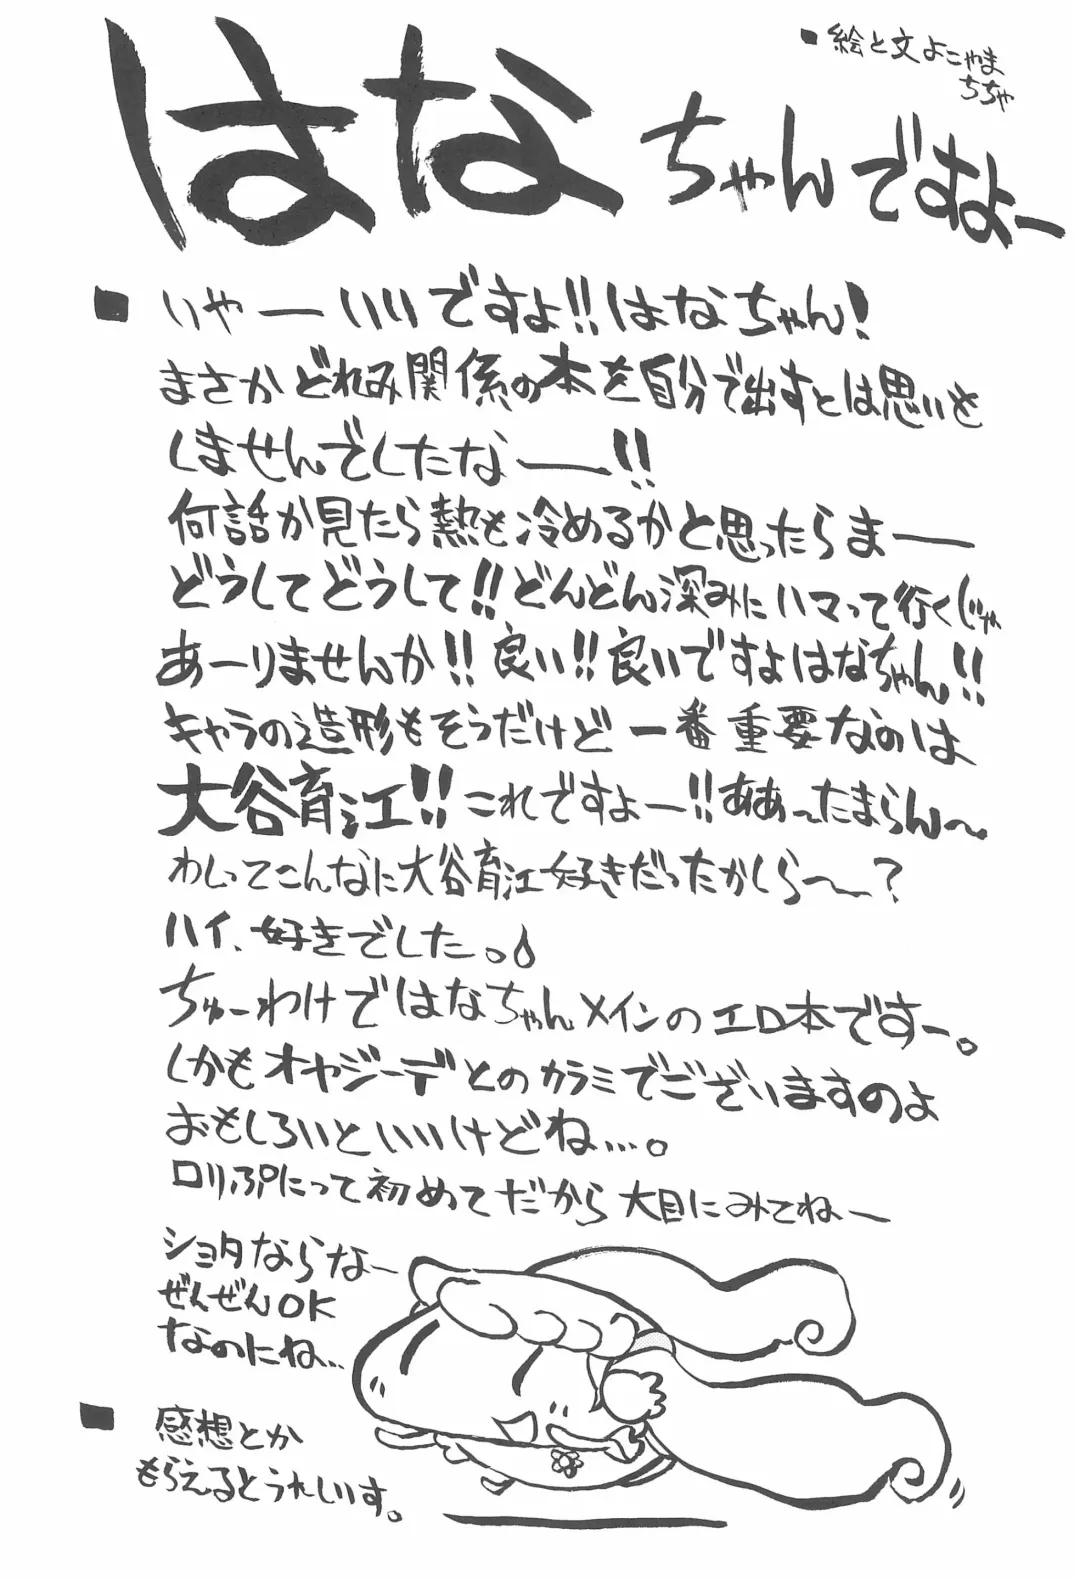 ■絵と文よこやま
ちちゃ
はなちゃんですよー
■いやーいいですよ!!はなちゃん!
まさかどれみ関係の本を自分で出すとは思いも
しませんでしたなー!!
何話か見たら熱も冷めるかと思ったらまー
どうしてどうして!!どんどん深みにハマって行くじゃ
あーりませんか!!良い!!良いですよはなちゃん!!
キャラの造形もそうだけど一番重要なのは
大谷育江!!これですよー!!ああ〜たまらん〜
わしってこんなに大谷育江好きだったかしら〜?
ハイ、好きでした。
ちゅーわけではなちゃんメインのエロ本ですー。
しかもオヤジーデとのカラミでございますのよ
おもしろいといいけどね…。
ロリぷにって初めてだから大目にみてねー
ショタならなー
ぜんぜんOK
なのにね…
■感想とか
もらえるとうれしいす。